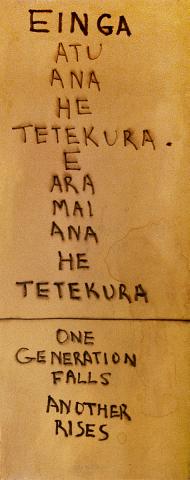 EINGA
ATU
ANA
HE
TETEKURA.
E
ARA
MAI
ANA
HE
TETEKURA
ONE
GENERATION
FALLS
ANOTHER
RISES